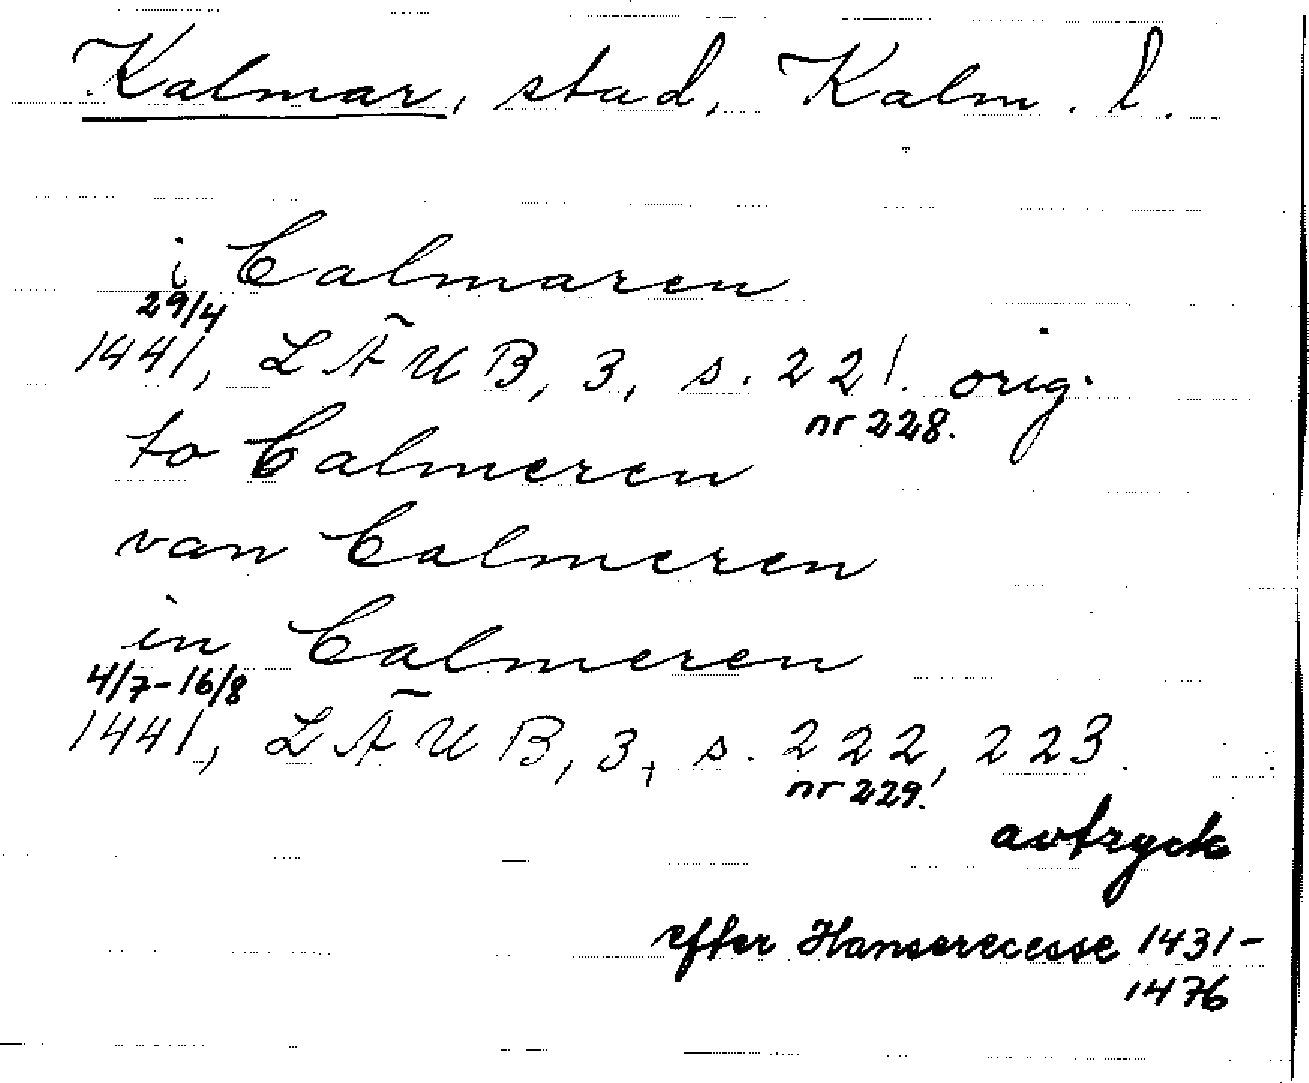 Kalmar, stad, Kalm. l.
i Calmaren
29/4
1441, LÄUB, 3, s. 221. orig.
nr 228.
to Calmeren
van Calmeren
in Calmeren
4/7-16/8
1441, LÄUB, 3, s. 222, 223.
nr 229.
avtryck
efter Hanserecesse 1431-
1476